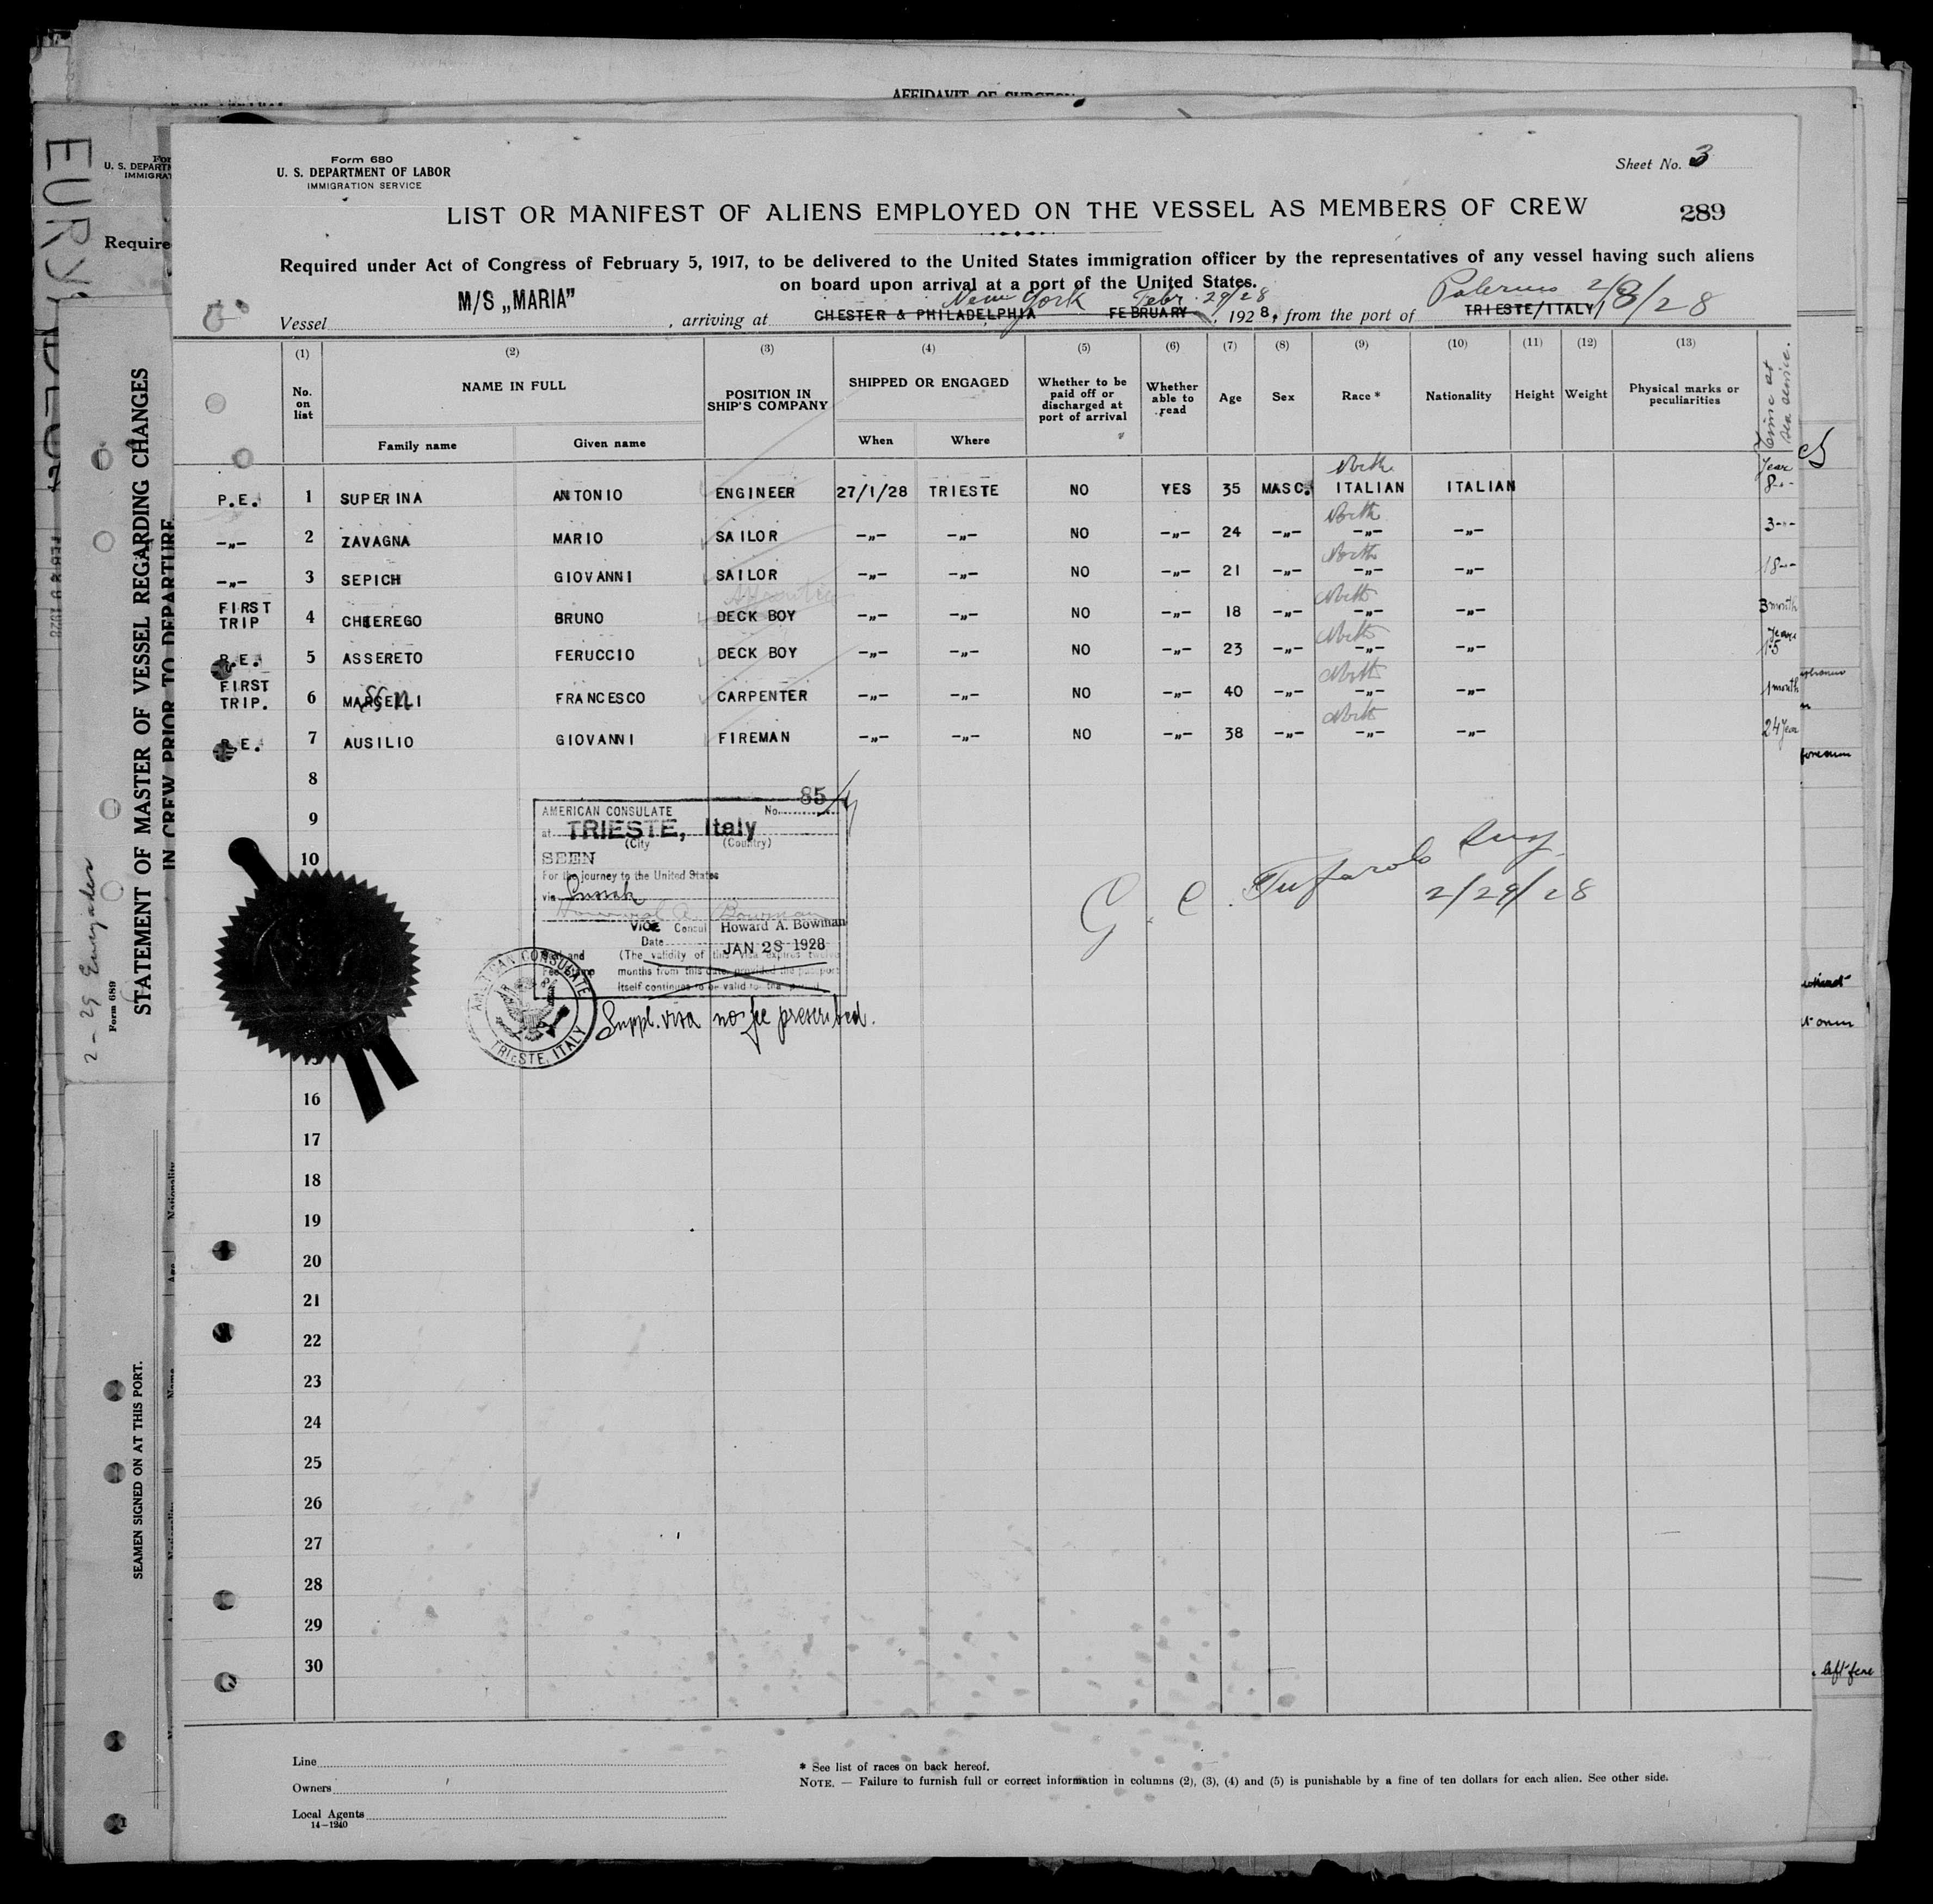 AFFIDAVIT OF SURGEON
Form 680
U. S. DEPARTMENT OF LABOR
IMMIGRATION SERVICE
Sheet No. 3
LIST OR MANIFEST OF ALIENS EMPLOYED ON THE VESSEL AS MEMBERS OF CREW
289
Required under Act of Congress of February 5, 1917, to be delivered to the United States immigration officer by the representatives of any vessel having such aliens
on board upon arrival at a port of the United States.
New York Febr. 29/28 Palermo 2/8/28
Vessel M/S „MARIA" , arriving at CHESTER & PHILADELPHIA FEBRUARY , 1928, from the port of TRIESTE/ITALY/
(1) (2) (3) (4) (5) (6) (7) (8) (9) (10) (11) (12) (13)
No. on list
NAME IN FULL
Family name Given name
POSITION IN SHIP'S COMPANY
SHIPPED OR ENGAGED
When Where
Whether to be paid off or discharged at port of arrival
Whether able to read
Age Sex Race * Nationality Height Weight
Physical marks or peculiarities
Time at sea service.
North Year
P.E. 1 SUPERINA ANTONIO ENGINEER 27/1/28 TRIESTE NO YES 35 MASC. ITALIAN ITALIAN 8--
North
-„- 2 ZAVAGNA MARIO SAILOR -„- -„- NO -„- 24 -„- -„- -„- 3--
North
-„- 3 SEPICH GIOVANNI SAILOR -„- -„- NO -„- 21 -„- -„- -„- 18--
North
FIRST TRIP 4 CHIEREGO BRUNO DECK BOY -„- -„- NO -„- 18 -„- -„- -„- 3 month
North Year
P.E. 5 ASSERETO FERUCCIO DECK BOY -„- -„- NO -„- 23 -„- -„- -„-
North
FIRST TRIP. 6 MARCELLI FRANCESCO CARPENTER -„- -„- NO -„- 40 -„- -„- -„- 1 month
North
P.E. 7 AUSILIO GIOVANNI FIREMAN -„- -„- NO -„- 38 -„- -„- -„- 24 Year
8
9
10
15
16
17
18
19
20
21
22
23
24
25
26
27
28
29
30
AMERICAN CONSULATE No. 85/
at TRIESTE, Italy
(City (Country)
SEEN
For the journey to the United States
via
Vice Consul Howard A. Bowman
Date JAN 28 1928
Seal and Fee Stamp
(The validity of this visa expires twelve
months from this date, provided the passport
itself continues to be valid for that period
AMERICAN CONSULATE
TRIESTE, ITALY
Suppl. visa no fee prescribed.
G. C. Tufarolo
2/29/28
Line
Owners
Local Agents
14—1240
* See list of races on back hereof.
NOTE. — Failure to furnish full or correct information in columns (2), (3), (4) and (5) is punishable by a fine of ten dollars for each alien. See other side.
U. S. DEPART
IMMIGRA
Require
STATEMENT OF MASTER OF VESSEL REGARDING CHANGES
IN CREW PRIOR TO DEPARTURE
Form 689
SEAMEN SIGNED ON AT THIS PORT.
left fore